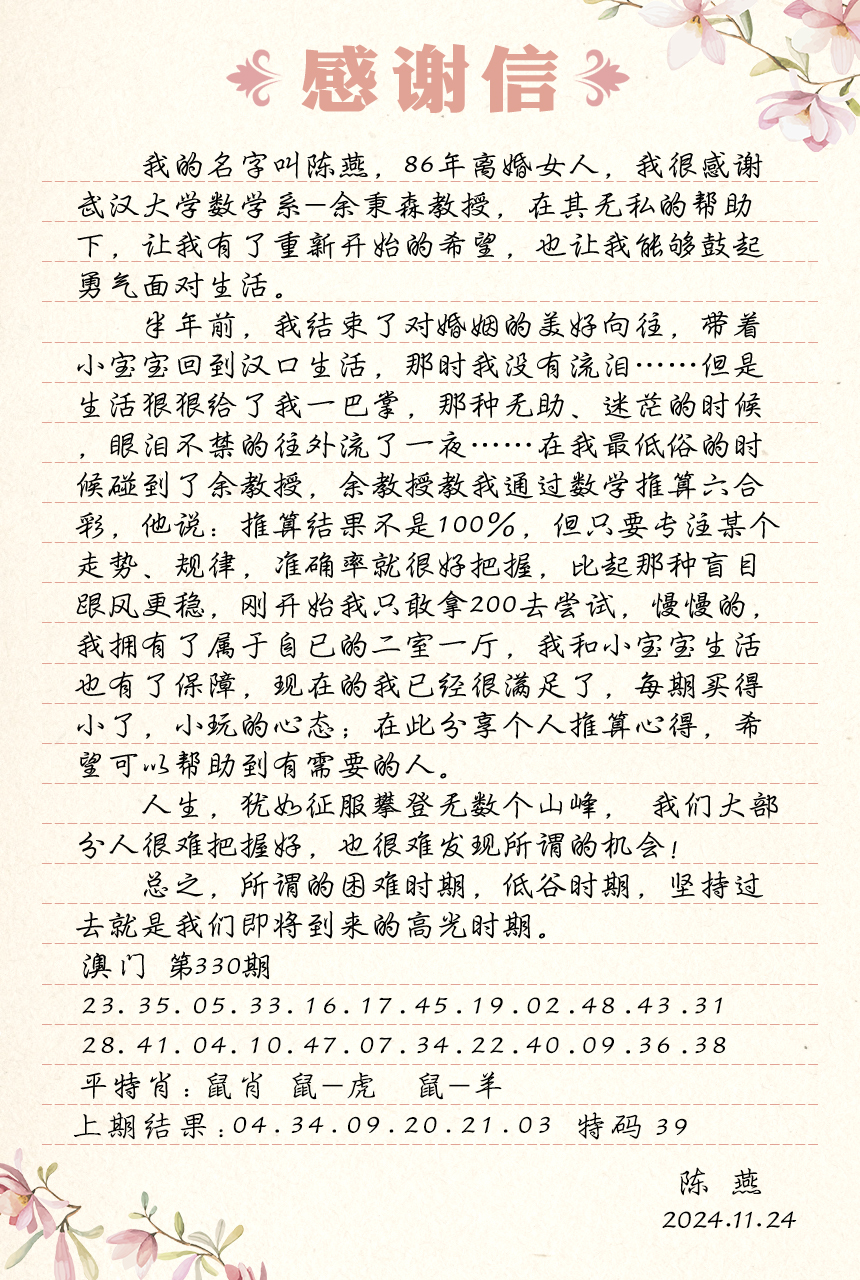 感谢信
我的名字叫陈燕，86年离婚女人，我很感谢
武汉大学数学系—余秉森教授，在其无私的帮助
下，让我有了重新开始的希望，也让我能够鼓起
勇气面对生活。
半年前，我结束了对婚姻的美好向往，带着
小宝宝回到汉口生活，那时我没有流泪……但是
生活狠狠给了我一巴掌，那种无助、迷茫的时候
，眼泪不禁的往外流了一夜……在我最低俗的时
候碰到了余教授，余教授教我通过数学推算六合
彩，他说：推算结果不是100%，但只要专注某个
走势、规律，准确率就很好把握，比起那种盲目
跟风更稳，刚开始我只敢拿200去尝试，慢慢的，
我拥有了属于自已的二室一厅，我和小宝宝生活
也有了保障，现在的我已经很满足了，每期买得
小了，小玩的心态；在此分享个人推算心得，希
望可以帮助到有需要的人。
人生，犹如征服攀登无数个山峰， 我们大部
分人很难把握好，也很难发现所谓的机会！
总之，所谓的困难时期，低谷时期，坚持过
去就是我们即将到来的高光时期。
澳门 第330期
23.35.05.33.16.17.45.19.02.48.43.31
28.41.04.10.47.07.34.22.40.09.36.38
平特肖：鼠肖 鼠—虎 鼠—羊
上期结果：04.34.09.20.21.03 特码 39
陈 燕
2024.11.24